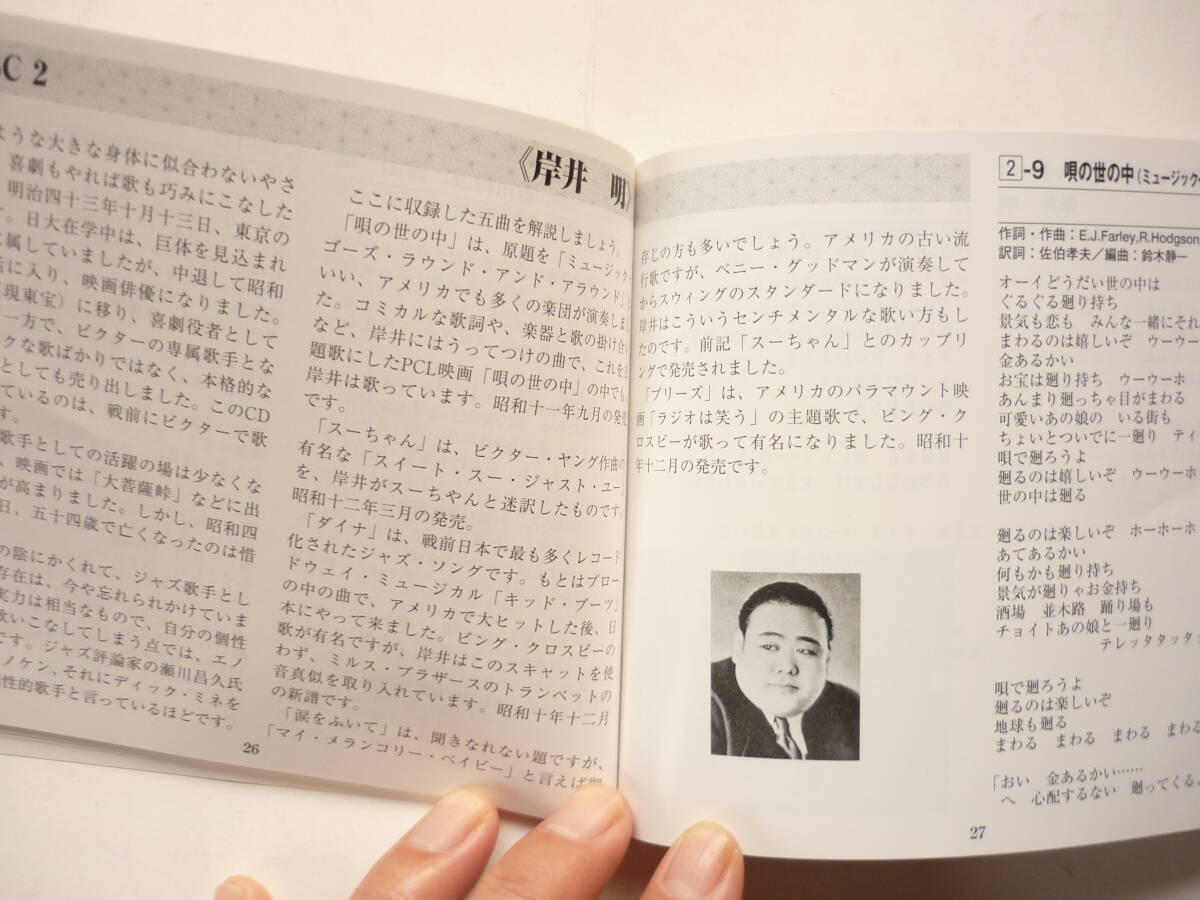 SC 2
《岸井 明》
ような大きな身体に似合わないやさ
喜劇もやれば歌も巧みにこなした
明治四十三年十月十三日、東京の
。日大在学中は、巨体を見込まれ
属していましたが、中退して昭和
に入り、映画俳優になりました。
現東宝)に移り、喜劇役者として
一方で、ビクターの専属歌手とな
クな歌ばかりではなく、本格的な
としても売り出しました。このCD
ているのは、戦前にビクターで歌
す。
歌手としての活躍の場は少なくな
、映画では「大菩薩峠」などに出
が高まりました。しかし、昭和四
日、五十四歳で亡くなったのは惜
の陰にかくれて、ジャズ歌手とし
存在は、今や忘れられかけていま
実力は相当なもので、自分の個性
歌いこなしてしまう点では、エノ
です。ジャズ評論家の瀬川昌久氏
ノケン、それにディック・ミネを
個性的歌手と言っているほどです。
ここに収録した五曲を解説しましょう。
「唄の世の中」は、原題を「ミュージック・
ゴーズ・ラウンド・アンド・アラウンド」と
いい、アメリカでも多くの楽団が演奏しまし
た。コミカルな歌詞や、楽器と歌の掛け合い
など、岸井にはうってつけの曲で、これを主
題歌にしたPCL映画「唄の世の中」の中でも
岸井は歌っています。昭和十一年九月の発売
です。
「スーちゃん」は、ビクター・ヤング作曲の
有名な「スイート・スー・ジャスト・ユー」
を、岸井がスーちやんと迷訳したものです。
昭和十二年三月の発売。
「ダイナ」は、戦前日本で最も多くレコード
化されたジャズ・ソングです。もとはブロー
ドウェイ・ミュージカル「キッド・ブーツ」
の中の曲で、アメリカで大ヒットした後、日
本にやって来ました。ビング・クロスビーの
歌が有名ですが、岸井はこのスキャットを使
わず、ミルス・ブラザースのトランペットの
音真似を取り入れています。昭和十年十二月
の新譜です。
「涙をふいて」は、聞きなれない題ですが、
「マイ・メランコリー・ベイビー」と言えば御
26
存じの方も多いでしょう。アメリカの古い流
行歌ですが、ベニー・グッドマンが演奏して
からスウィングのスタンダードになりました。
岸井はこういうセンチメンタルな歌い方もし
たのです。前記「スーちゃん」とのカップリ
ングで発売されました。
「プリーズ」は、アメリカのパラマウント映
画「ラジオは笑う」の主題歌で、ビング・ク
ロスビーが歌って有名になりました。昭和十
年十二月の発売です。
2-9 唄の世の中(ミュージック・
作詞・作曲:E.J.Farley,R.Hodgson
訳詞:佐伯孝夫/編曲:鈴木静一
オーイどうだい世の中は
ぐるぐる廻り持ち
景気も恋も みんな一緒にそれ
まわるのは嬉しいぞ ウーウー
金あるかい
お宝は廻り持ち ウーウーホ
あんまり廻っちゃ目がまわる
可愛いあの娘の いる街も
ちょいとついでに一廻り ティ
唄で廻ろうよ
廻るのは嬉しいぞ ウーウーホ
世の中は廻る
廻るのは楽しいぞ ホーホーホ
あてあるかい
何もかも廻り持ち
景気が廻りゃお金持ち
酒場 並木路 踊り場も
チョイトあの娘と一廻り
テレッタタッタ
唄で廻ろうよ
廻るのは楽しいぞ
地球も廻る
まわる まわる まわる まわる
「おい 金あるかい……
へ 心配するない 廻ってくるよ
27